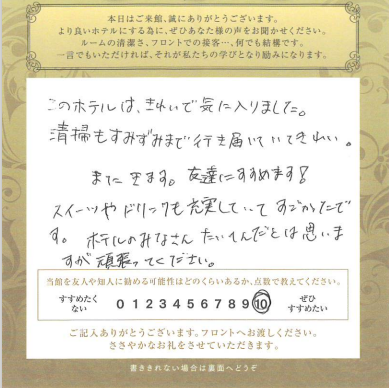 本日はご来館、誠にありがとうございます。
より良いホテルにする為に、ぜひあなた様の声をお聞かせください。
ルームの清潔さ、フロントでの接客…、何でも結構です。
一言でもいただければ、それが私たちの学びとなり励みになります。
このホテルは、きれいで気に入りました。
清掃もすみずみまで行き届いていてきれい。
またきます。友達にすすめます!
スイーツやドリンクも充実していてすごかったで
す。ホテルのみなさんたいへんだとは思いま
すが頑張ってください。
当館を友人や知人に勧める可能性はどのくらいあるか、点数で教えてください。
すすめたく
ない
0 1 2 3 4 5 6 7 8 9 10
ぜひ
すすめたい
ご記入ありがとうございます。フロントへお渡しください。
ささやかなお礼をさせていただきます。
書ききれない場合は裏面へどうぞ